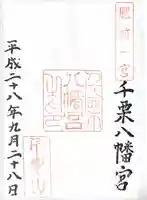 肥前一宮
千栗八幡宮
平成二十八年九月二十八日